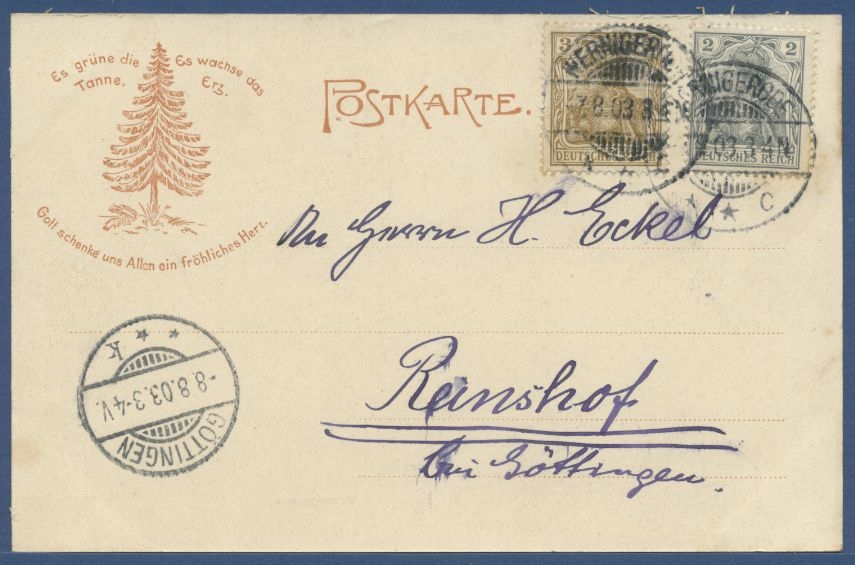 Es grüne die Tanne.
Es wachse das Erz.
Gott schenke uns Allen ein fröhliches Herz.
POSTKARTE.
3
DEUTSCHES REICH
2 2
DEUTSCHES REICH
WERNIGERODE
8.03.3-4N.
WERNIGERODE
8.03.3-4N.
* * C
An Herrn H. Eckel
Reinshof
bei Göttingen.
* * k
-8.8.03.3-4V.
GÖTTINGEN